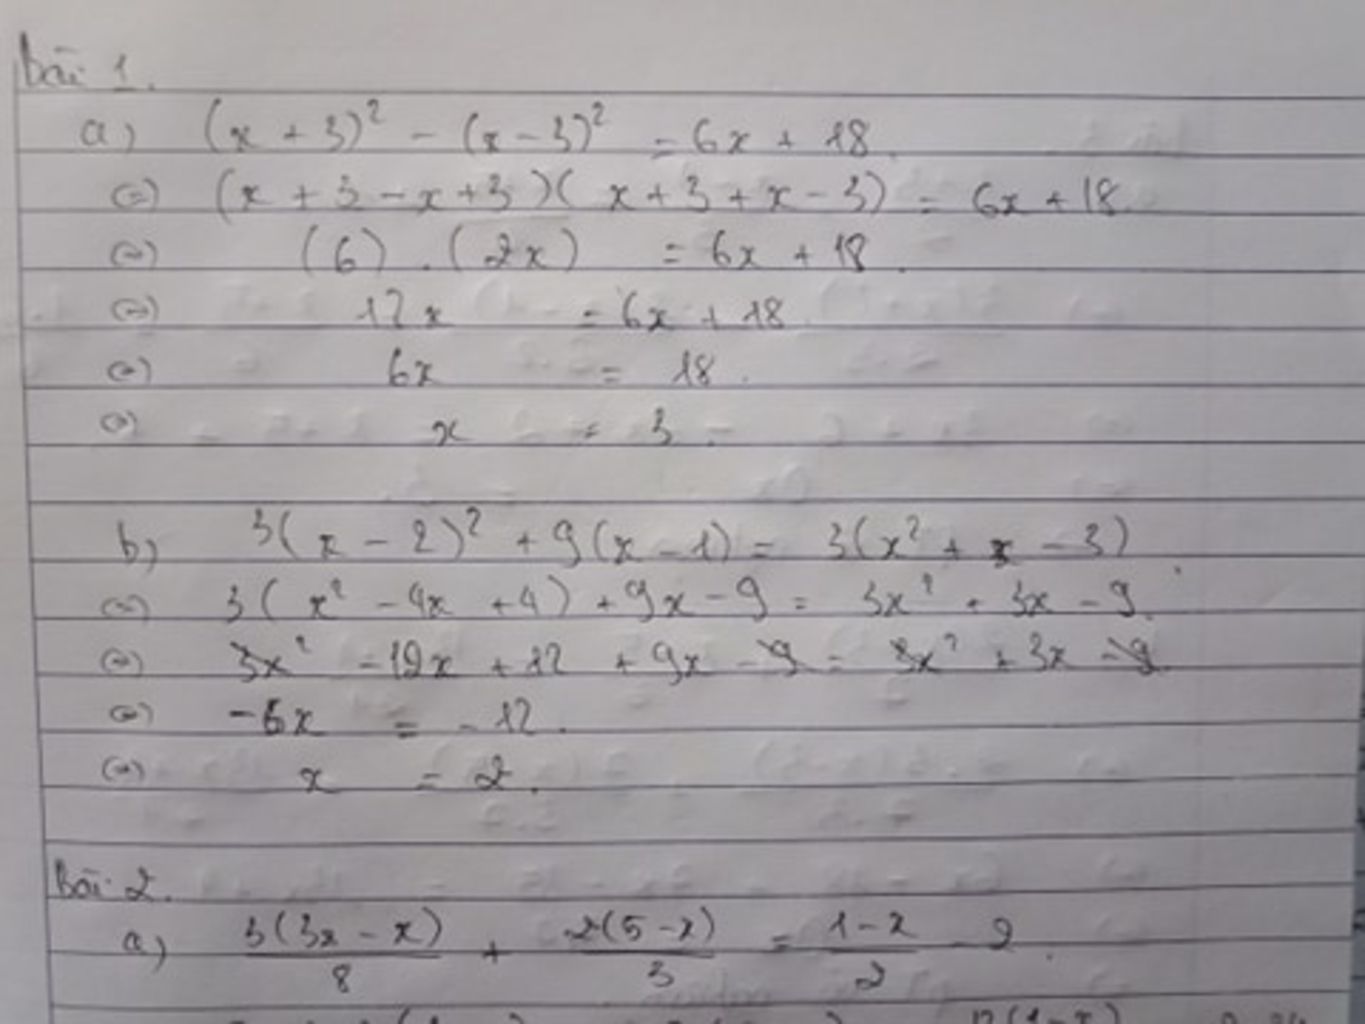 Bài 1.
a) (x + 3)² - (x - 3)² = 6x + 18.
(=) (x + 3 - x + 3)(x + 3 + x - 3) = 6x + 18.
(=) (6) . (2x) = 6x + 18.
(=) 12x = 6x + 18
(=) 6x = 18.
(=) x = 3.
b) 3(x - 2)² + 9(x - 1) = 3(x² + x - 3)
(=) 3(x² - 4x + 4) + 9x - 9 = 3x² + 3x - 9.
(=) 3x² - 12x + 12 + 9x - 9 = 3x² + 3x - 9.
(=) -6x = -12.
(=) x = 2.
Bài 2.
a) 3(3x - x)/8 + 2(5 - x)/3 = (1 - x)/2 - 2.